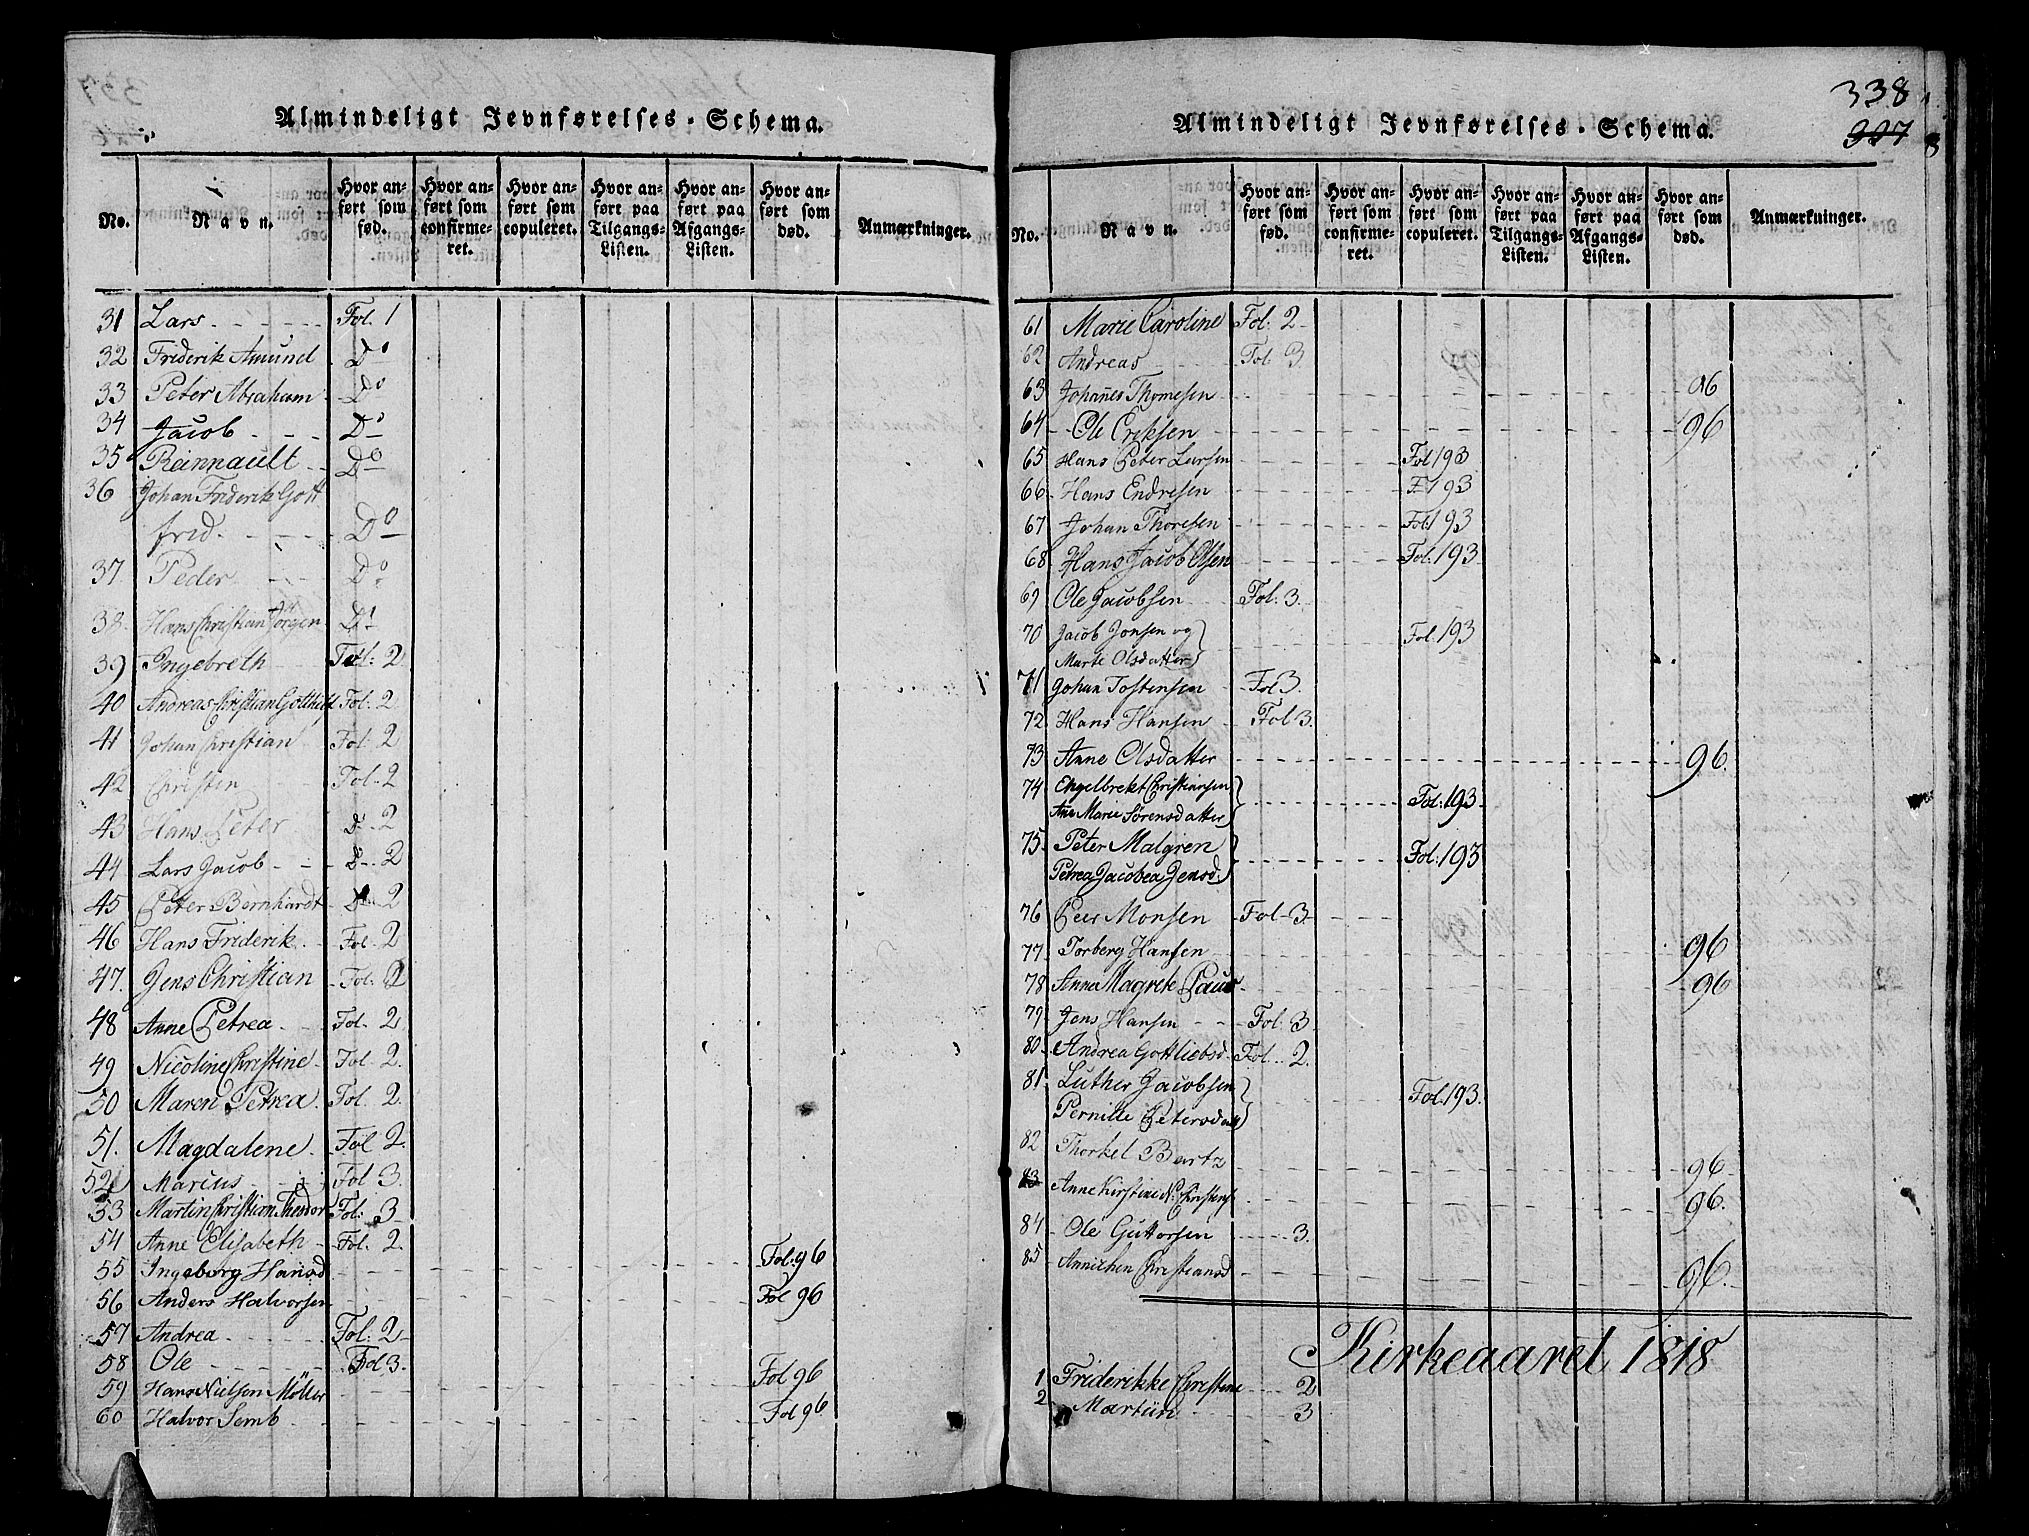 Almindeligt Jevnførelses-Schema.
No.
Navn.
Hvor an-
ført som
fød.
Hvor an-
ført som
confirme-
ret.
Hvor an-
ført som
copuleret.
Hvor an-
ført paa
Tilgangs-
Listen.
Hvor an-
ført paa
Afgangs-
Listen.
Hvor an-
ført som
død.
Anmærkninger.
31 Lars. Fol. 1
32 Friderik Amund Do
33 Peter Abraham Do
34 Jacob Do
35 Reinnault Do
36 Johan Friderik Gott
frid. Do
37 Peder Do
38. Hans Christian Jörgen Do
39 Ingebreth Fol: 2
40 Andreas Christian Gotthilf Fol: 2
41 Johan Christian Fol. 2
42 Christen Fol. 2
43 Hans Peter D. 2
44 Lars Jacob D. 2
45 Peter Bernhardt D. 2
46 Hans Friderik. Fol. 2
47. Jens Christian Fol. 2
48 Anne Petrea Fol. 2
49 Nicoline Christine Fol 2.
50 Maren Petrea. Fol. 2.
51. Magdalene Fol 2.
52 Marius Fol 3.
53 Martin Christian Theodor Fol: 3
54 Anne Elisabeth Fol. 2.
55 Ingeborg Hansd Fol. 96
56 Anders Halvorsen Fol 96
57 Andrea Fol: 2
58 Ole Fol 3.
59 Hans Nielsen Möller Fol 96
60 Halvor Semb Fol 96
338
337
Almindeligt Jevnførelses-Schema.
No.
Navn.
Hvor an-
ført som
fød.
Hvor an-
ført som
confirme-
ret.
Hvor an-
ført som
copuleret.
Hvor an-
ført paa
Tilgangs-
Listen.
Hvor an-
ført paa
Afgangs-
Listen.
Hvor an-
ført som
død.
Anmærkninger.
61 Marie Caroline Fol: 2
62 Andreas Fol. 3
63 Johañes Thomesen 96
64 Ole Eriksen 96
65 Hans Peter Larsen Fol 193
66 Hans Endresen F 193
67 Johan Thoresen Fol. 193
68 Hans Jacob Olsen Fol. 193
69 Ole Jacobsen Fol. 3.
70 Jacob Jonsen og Fol. 193
Marte Olsdatter
71 Johan Tostensen Fol 3.
72. Hans Hansen Fol 3.
73 Anne Olsdatter 96.
74 Engelbrekt Christiansen
Ane Marie Sörensdatter Fol: 193
75. Peter Malgren
Petrea Jacobea Jensd. Fol: 193
76 Peer Monsen Fol. 3.
77. Torberg Hansen 96
78 Anne Magrete Paus 96
79 Jens Hansen Fol. 3
80 Andrea Gottliebsd. Fol. 2.
81. Luther Jacobsen
Pernille Petersdatt Fol. 193.
82 Thorkel Bartz 96
83 Anne Kirstine N. Christens 96.
84 Ole Guttorsen 3.
85 Annichen Christiansd 96.
Kirkeaaret 1818
1 Friderikke Christine 2
2 Martiin 3